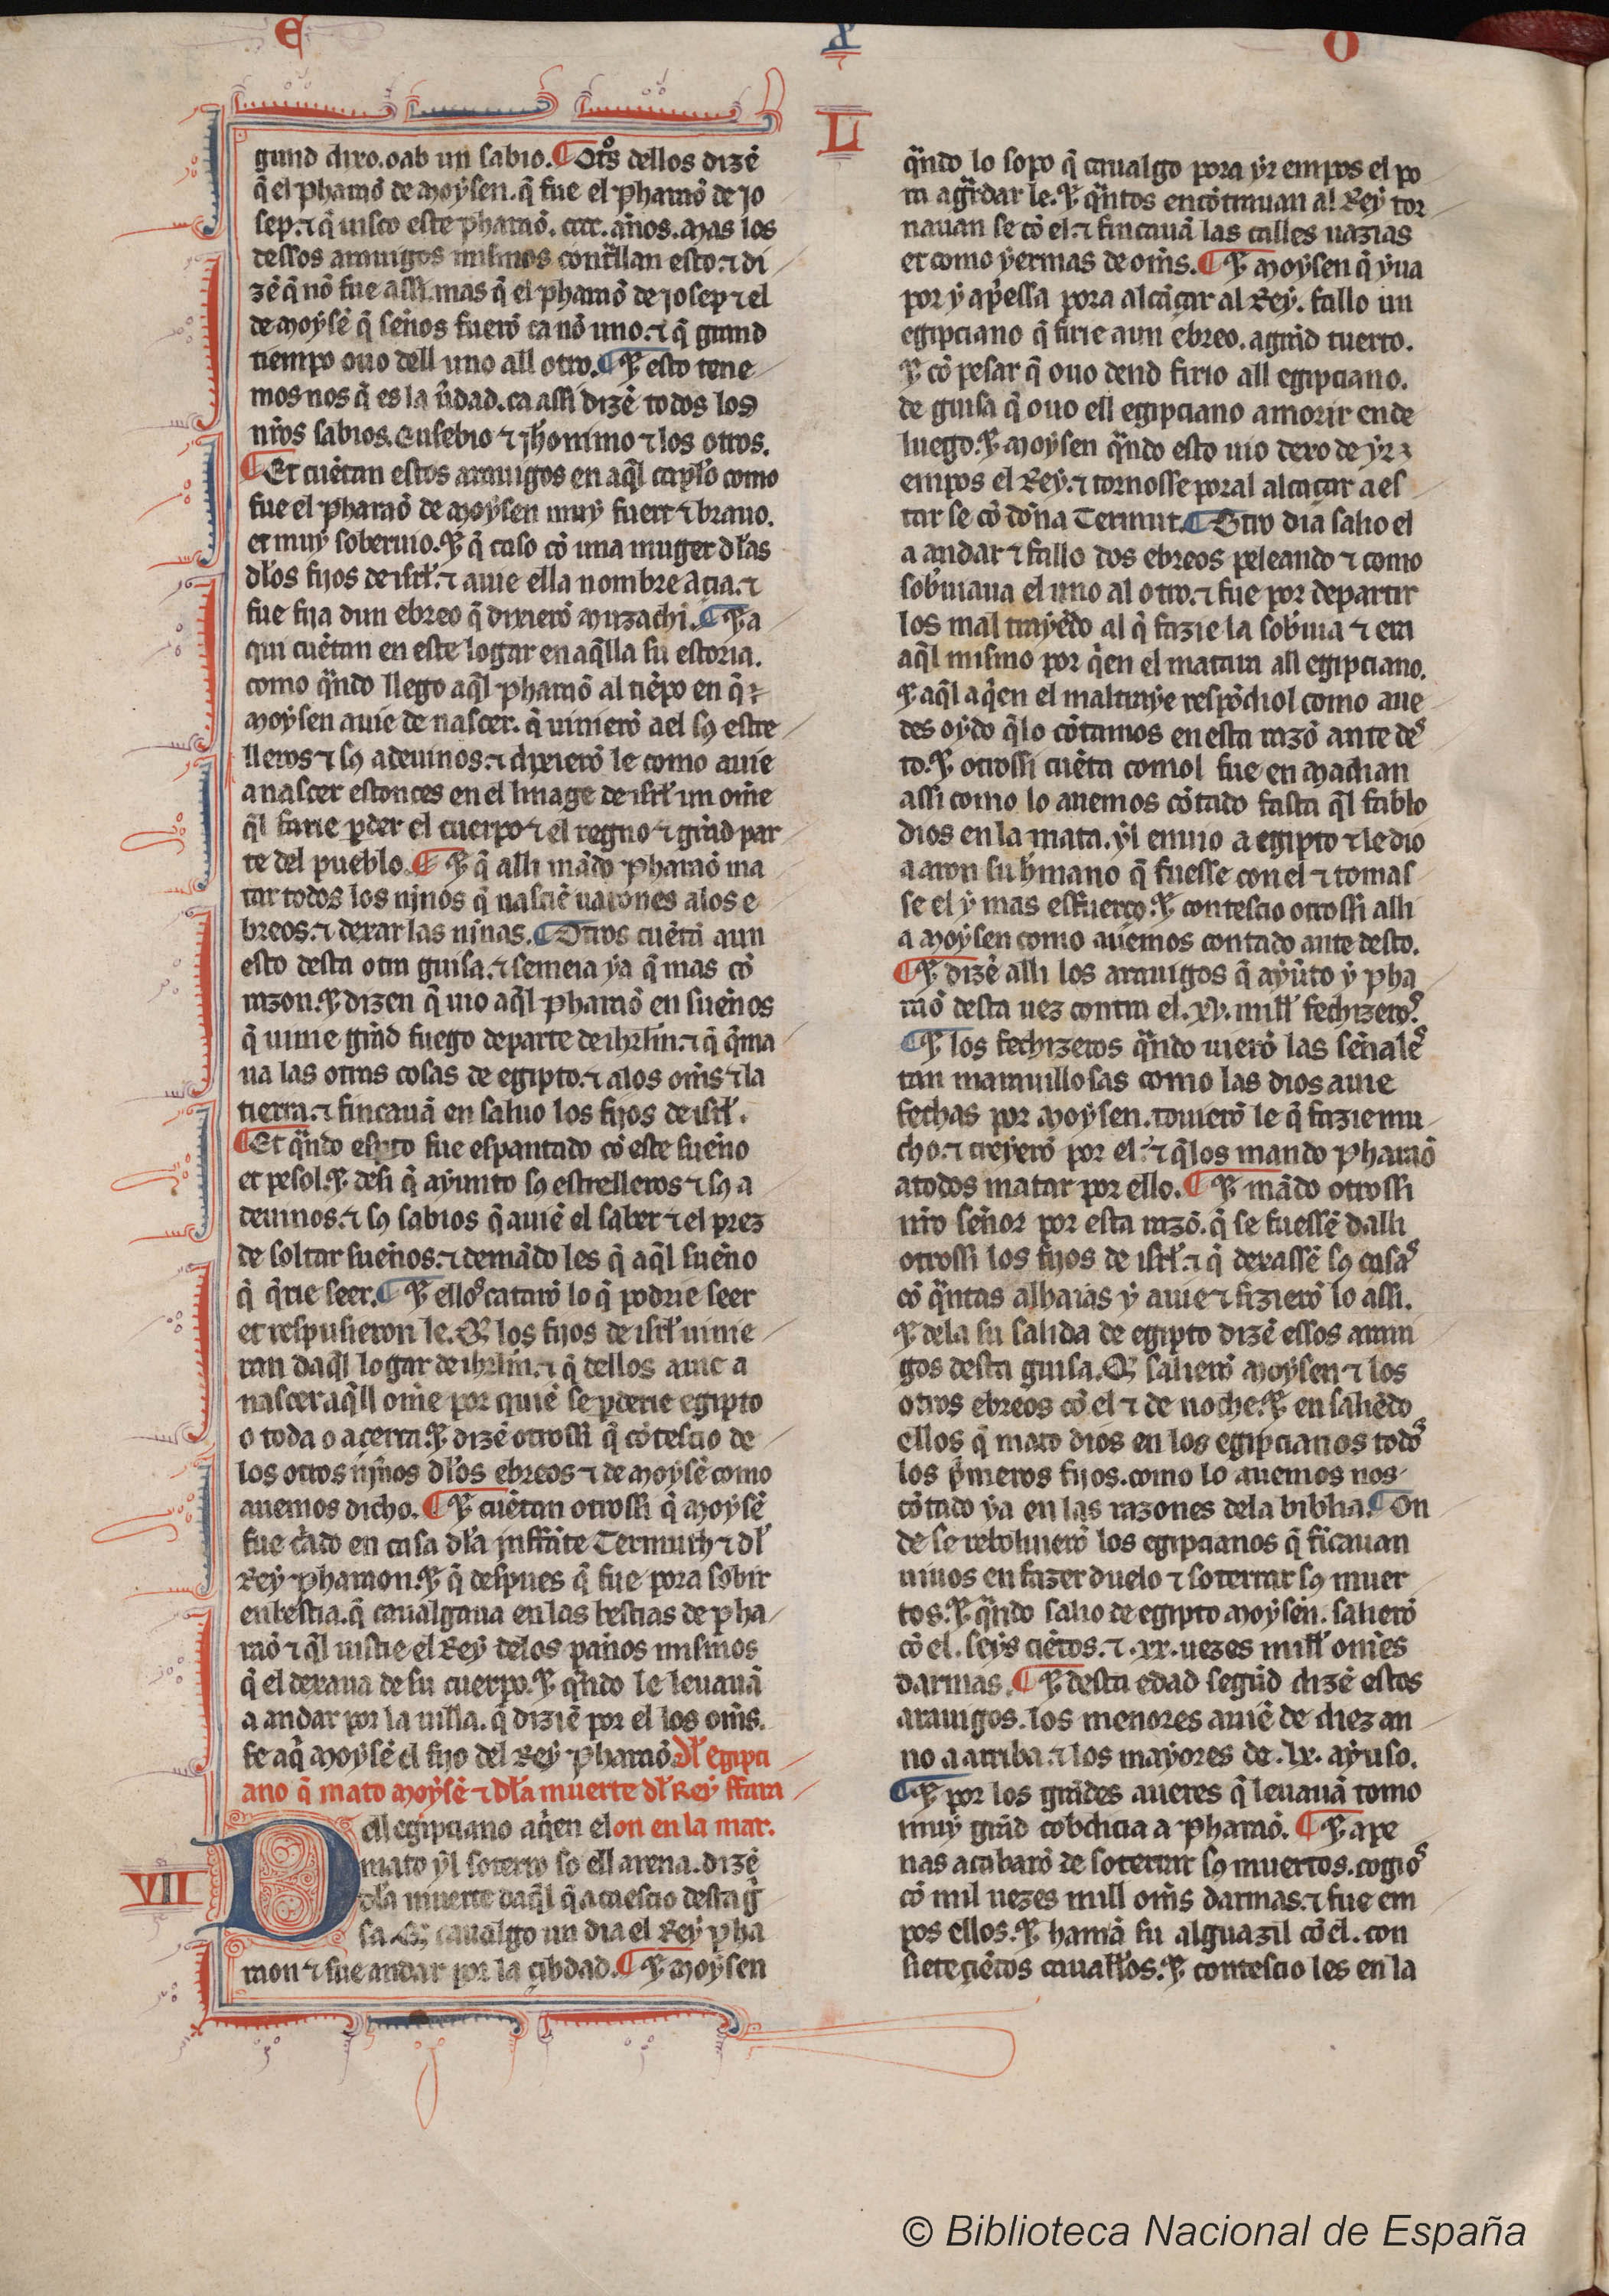 E X O
L
gund dixo. oab un sabio. ¶ Otͦs dellos dizē
q̄ el pharaõ de moysen. q̄ fue el pharaõ de jo
sep. ⁊ q̄ uisco este pharaõ. cccc. años. mas los
dessos arauigos mismos contrallan esto. ⁊ di
zē q̄ nō fue assi. mas q̄ el pharaõ de josep ⁊ el
de moysē q̄ seños fuerō ca nō uno. ⁊ q̄ grand
tiempo ouo dell uno all otro. ¶ ⁊ esto tene
mos nos q̄ es la ũdad. ca assi dizē todos los
nr̃os sabios. eusebio ⁊ jheronimo ⁊ los otros.
¶ Et cuētan estos arauigos en aq̄l cap̃lo como
fue el pharaõ de moysen muy fuert ⁊ brauo.
et muy soberuio. ⁊ q̄ caso cō una muger dłas
dłos fijos de isrł. ⁊ auie ella nombre acia. ⁊
fue fija dun ebreo q̄ dixierō muzachi. ¶ ⁊ a
qui cuētan en este logar en aq̄lla su estoria.
como q̃ndo llego aq̄l pharaõ al tiēpo en q̄
moysen auie de nascer. q̄ uinierō a el sꝯ estre
lleros ⁊ sꝯ adeuinos. ⁊ dixierō le como auie
a nascer estonces en el linage de isrł un om̄e
q̄l farie p̱der el cuerpo ⁊ el regno ⁊ grãd par
te del pueblo. ¶ ⁊ q̄ alli mãdo pharaõ ma
tar todos los ninos q̄ nasciē uarones a los e
breos. ⁊ dexar las ninas. ¶ Otros cuētã aun
esto desta otra guisa. ⁊ semeia ya q̄ mas cō
razon. ⁊ dizen q̄ uio aq̄l pharaõ en sueños
q̄ uinie grãd fuego de parte de ihrlm̄. ⁊ q̄ q̄ma
ua las otras cosas de egipto. ⁊ a los om̄s ⁊ la
tierra. ⁊ fincauã en saluo los fijos de isrł.
¶ Et q̃ndo espto fue espantado cō este sueño
et pesol. ⁊ desi q̄ ayunto sꝯ estrelleros ⁊ sꝯ a
deuinos. ⁊ sꝯ sabios q̄ auiē el saber ⁊ el prez
de soltar sueños. ⁊ demãdo les q̄ aq̄l sueño
q̄ q̄rie seer. ¶ ⁊ ellos catarō lo q̄ podrie seer
et respusieron le. Q̄ los fijos de isrł uinie
ran daq̄l logar de ihrlm̄. ⁊ q̄ dellos auie a
nascer aq̄ll om̄e por quiē se p̱derie egipto
o toda o açerca. ⁊ dizē otrossi q̄ cōtescio de
los otros niños dłos ebreos ⁊ de moysē como
auemos dicho. ¶ ⁊ cuētan otrossi q̄ moysē
fue c̃ado en casa dła jnffãte Termuth ⁊ dł
Rey pharaon. ⁊ q̄ despues q̄ fue pora sobir
en bestia. q̄ caualgaua en las bestias de pha
raõ ⁊ q̄l uistie el Rey delos paños mismos
q̄ el dexaua de su cuerpo. ⁊ q̃ndo le leuauã
a andar por la uilla. q̄ diziē por el los om̄s.
fe aq̄ moysē el fijo del Rey pharaõ. dł egipci
ano q̄ mato moysē ⁊ dła muerte dł Rey ffara
Dell egipciano aq̄en el on en la mar.
VII
mato yl soterro so ell arena. dizē
dła muerte daq̄l q̄ acaescio desta g̃
sa. Q̄ caualgo un dia el Rey pha
raon ⁊ fue andar por la çibdad. ¶ ⁊ moysen
q̃ndo lo sopo q̄ caualgo pora yr empos el po
ra ag̃rdar le. ⁊ q̃ntos encōtrauan al Rey tor
nauan se cō el. ⁊ fincauã las calles uazias
et como yermas de om̄s. ¶ ⁊ moysen q̄ yua
por y ap̃essa pora alcãçar al Rey. fallo un
egipciano q̄ firie a un ebreo. a grãd tuerto.
⁊ cō pesar q̄ ouo dend firio all egipciano.
de guisa q̄ ouo ell egipciano a morir ende
luego. ⁊ moysen q̃ndo esto uio dexo de yr
empos el Rey. ⁊ tornosse poral alcaçar a es
tar se cō doña Termut. ¶ Otro dia salio el
a andar ⁊ fallo dos ebreos peleando ⁊ como
sob̃uiaua el uno al otro. ⁊ fue por departir
los mal trayēdo al q̄ fazie la sob̃uia ⁊ era
aq̄l mismo por q̄en el matara all egipciano.
⁊ aq̄l aq̄en el maltraye respōdiol como aue
des oydo q̄lo cōtamos en esta razō ante des
to. ⁊ otrossi cuēta comol fue en madian
assi como lo auemos cōtado fasta q̄l fablo
dios en la mata. yl enuio a egipto ⁊ le dio
a aron su h̃mano q̄ fuesse con el ⁊ tomas
se el y mas esfuerço. ⁊ contescio otrossi alli
a moysen como auemos contado ante desto.
¶ ⁊ dizē alli los arauigos q̄ ayũto y pha
raõ desta uez contra el. xv. mill fechizeros.
¶ ⁊ los fechizeros q̃ndo uierō las señales
tan marauillosas como las dios auie
fechas por moysen. touierō le q̄ fazie mu
cho. ⁊ creyerō por el. ⁊ q̄los mando pharaõ
a todos matar por ello. ¶ ⁊ mãdo otrossi
nr̃o señor por esta razō. q̄ se fuessē dalli
otrossi los fijos de isrł. ⁊ q̄ dexassē sꝯ casas
cō q̃ntas alhaias y auie ⁊ fizierō lo assi.
⁊ dela su salida de egipto dizē essos araui
gos desta guisa. Q̄ salierō moysen ⁊ los
otros ebreos cō el ⁊ de noche. ⁊ en saliēdo
ellos q̄ mato dios en los egipcianos todos
los p̃meros fijos. como lo auemos nos
cōtado ya en las razones dela biblia. ¶ On
de se reboluierō los egipcianos q̄ ficauan
uiuos en fazer duelo ⁊ soterrar sꝯ muer
tos. ⁊ q̃ndo salio de egipto moysen. salierō
cō el. seys ciētos. ⁊ .xx. uezes mill om̄es
darmas. ¶ ⁊ desta edad segũd dizē estos
arauigos. los menores auiē de diez an
no a arriba. ⁊ los mayores de .lx. ayuso.
¶ ⁊ por los grãdes aueres q̄ leuauã tomo
muy grãd cobdicia a pharaõ. ¶ ⁊ ape
nas acabarō de soterrar sꝯ muertos. cogios
cō mil uezes mill om̄s darmas. ⁊ fue em
pos ellos. ⁊ hamã su alguazil cō el. con
sieteçiētos cauałłos. ⁊ contescio les en la
© Biblioteca Nacional de España